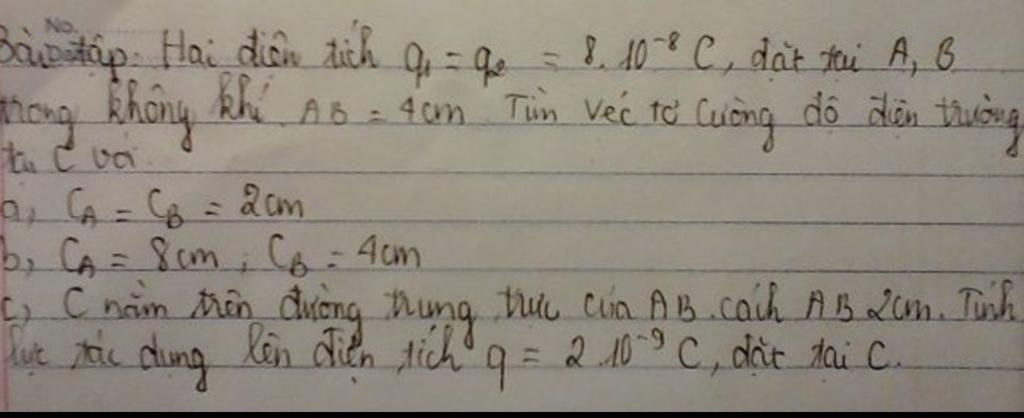 No.
Bài tập. Hai điện tích q₁ = q₂ = 8.10⁻⁸ C, đặt tại A, B
trong không khí. AB = 4cm. Tìm véc tơ cường độ điện trường
tại C với.
a, CA = CB = 2cm
b, CA = 8cm; CB = 4cm
c, C nằm trên đường trung trực của AB. cách AB 2cm. Tính
lực tác dụng lên điện tích q = 2.10⁻⁹ C, đặt tại C.